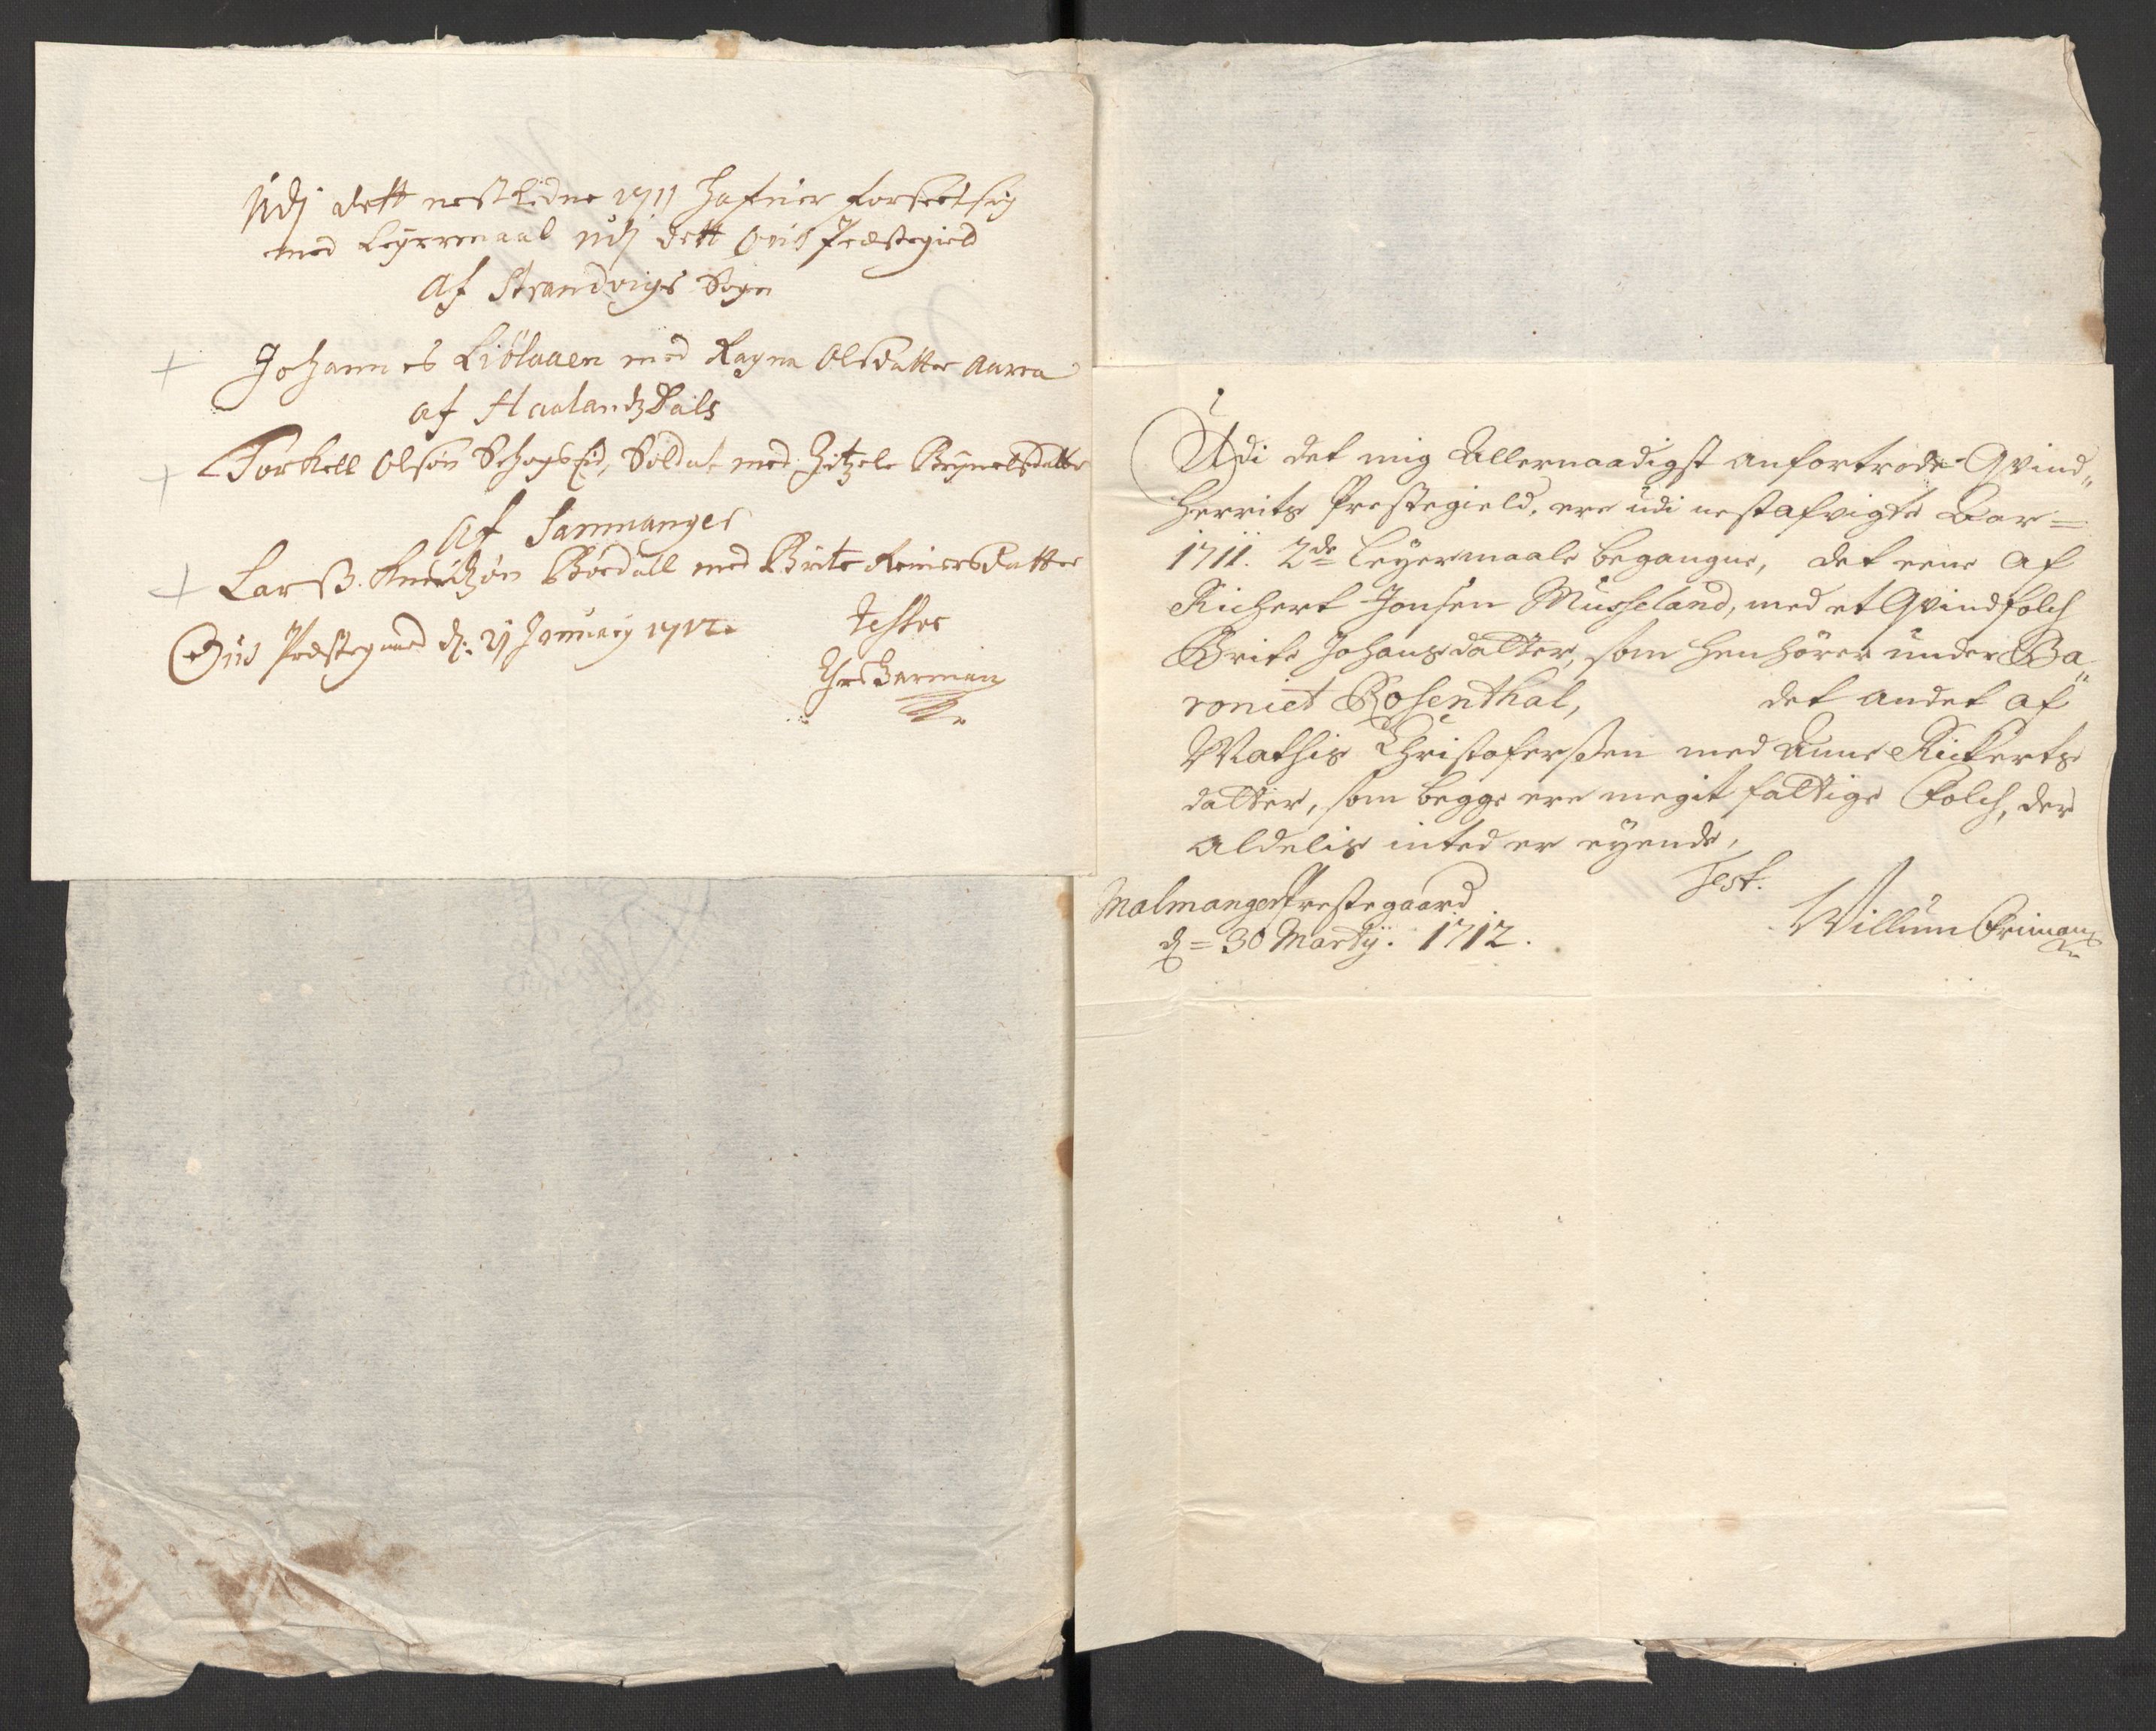 Udj dett nestledne 1711 Hafuer forseet sig
med Leyermaal udj dett Ous Præstegield
af Strandvigs Sogn
Johannes Liølaaen med Ragna Olsdatter Aarra
af Haalandzdals
Torkell Olsøn Schogseid, Soldat med Zitzele Brynelsdatter
af Sammanger
Larss. Knudtzøn Børdall med Brite Reinersdatter
Ous Præstegaard d: 21 January 1712.
testor
Udi det mig Allernaadigst anfortrode Qvind„
herrits Prestegield, ere udi nestafvigte Aar=
1711. 2de Leyermaale begangne, det eene af
Richert Jonsen Musseland, med et Qvindfolch
Brite Johansdatter, som henhörer under Ba„
roniet Rosenthal, det andet af
Mathis Christofersen med Anne Rickerts
datter, som begge ere megit fattige Folch, der
aldelis inted er eyende,
Test.
Malmanger Prestegaard
d= 30 Martij. 1712.
Willum Friman